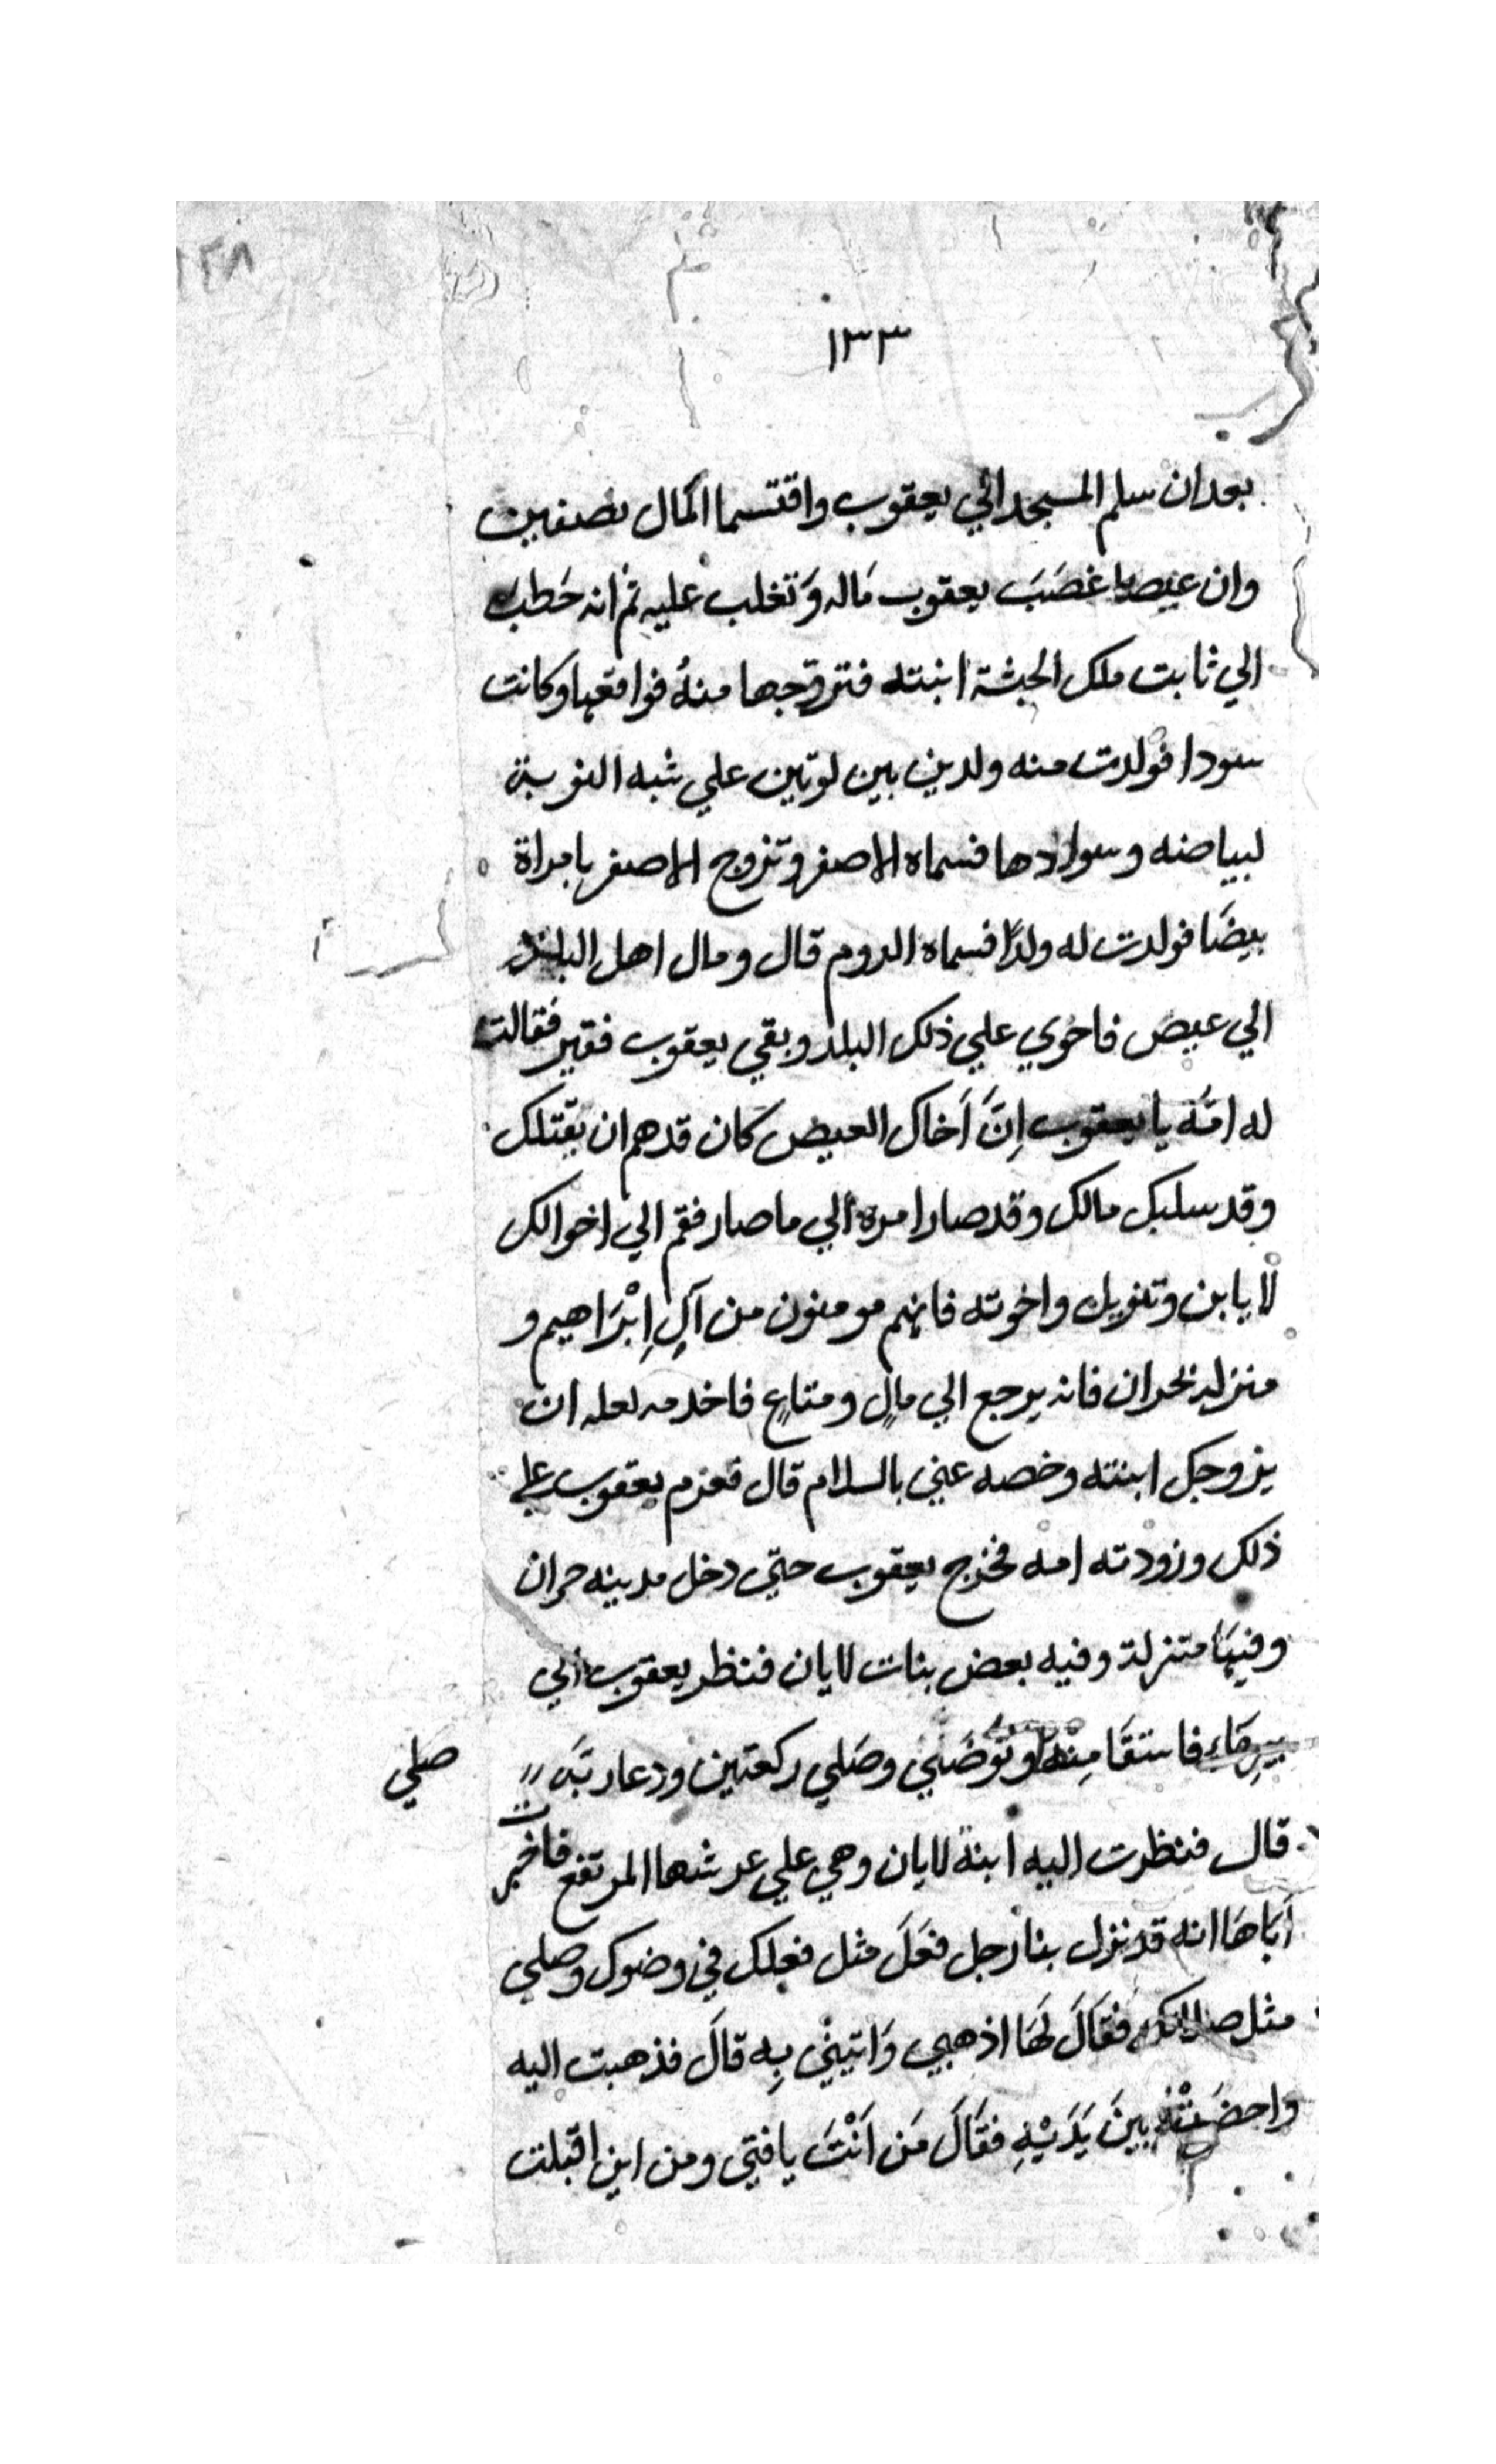 ١٣٨
١٣٣
بعد ان سلم المسجد الي يعقوب واقتسما المال نصفين
وان عيصا غصَبَ يعقوب مَاله وَتغلب عليه ثم انه خَطبَ
الي ثابت ملك الحبشة ابنته فتزوجها منهُ فواقعها وكانت
سودا فولدت منه ولدين بين لونين علي شبه النوبة
لبياضه وسوادها فسماه الاصفر وتزوج الاصفر بامراة
بيضَا فولدت له ولدًا فسماه الروم قال ومال اهل البلد
الي عيص فاحوي علي ذلك البلد وبقي يعقوب فقير فقالت
له امَّه يا يعقوب اِنَّ اَخاك العيص كان قد هم ان يقتلك
وقد سلبك مالك وقد صار امره الي ما صار فقم الي اخوالك
لايابن وتنويل واخوته فانهم مومنون من آلِ اِبْرَاهيم و
منزله بحران فانه يرجع الي مالٍ ومتاعٍ فاخدمه لعله ان
يزوجك ابنته وخصه عني بالسلام قال فعزم يعقوب علي
ذلك وزودته امه فخرج يعقوب حتي دخل مدينه حران
وفيهَا متنزلة وفيه بعض بنات لايان فنظر يعقوب الي
بيرِ مَاءٍ فاستقَا مِنْهُ وتوَضَي وصَلي ركعتين ودعا ربَّه
صلي
قال فنظرت اليه ابنة لايان وهي علي عرشها المرتفع فاخبرت
اَبَاهَا انه قد نزل بنا رجل فعَلَ مثل فعلك في وضوك وصلي
مثل صلاتك فقَالَ لهَا اذهبي وَاتيني بِه قالَ فذهبت اليه
واحضَرتْهُ بينَ يَدَيْهِ فقَالَ مَن اَنْتَ يا فتي ومن اين اقبلت